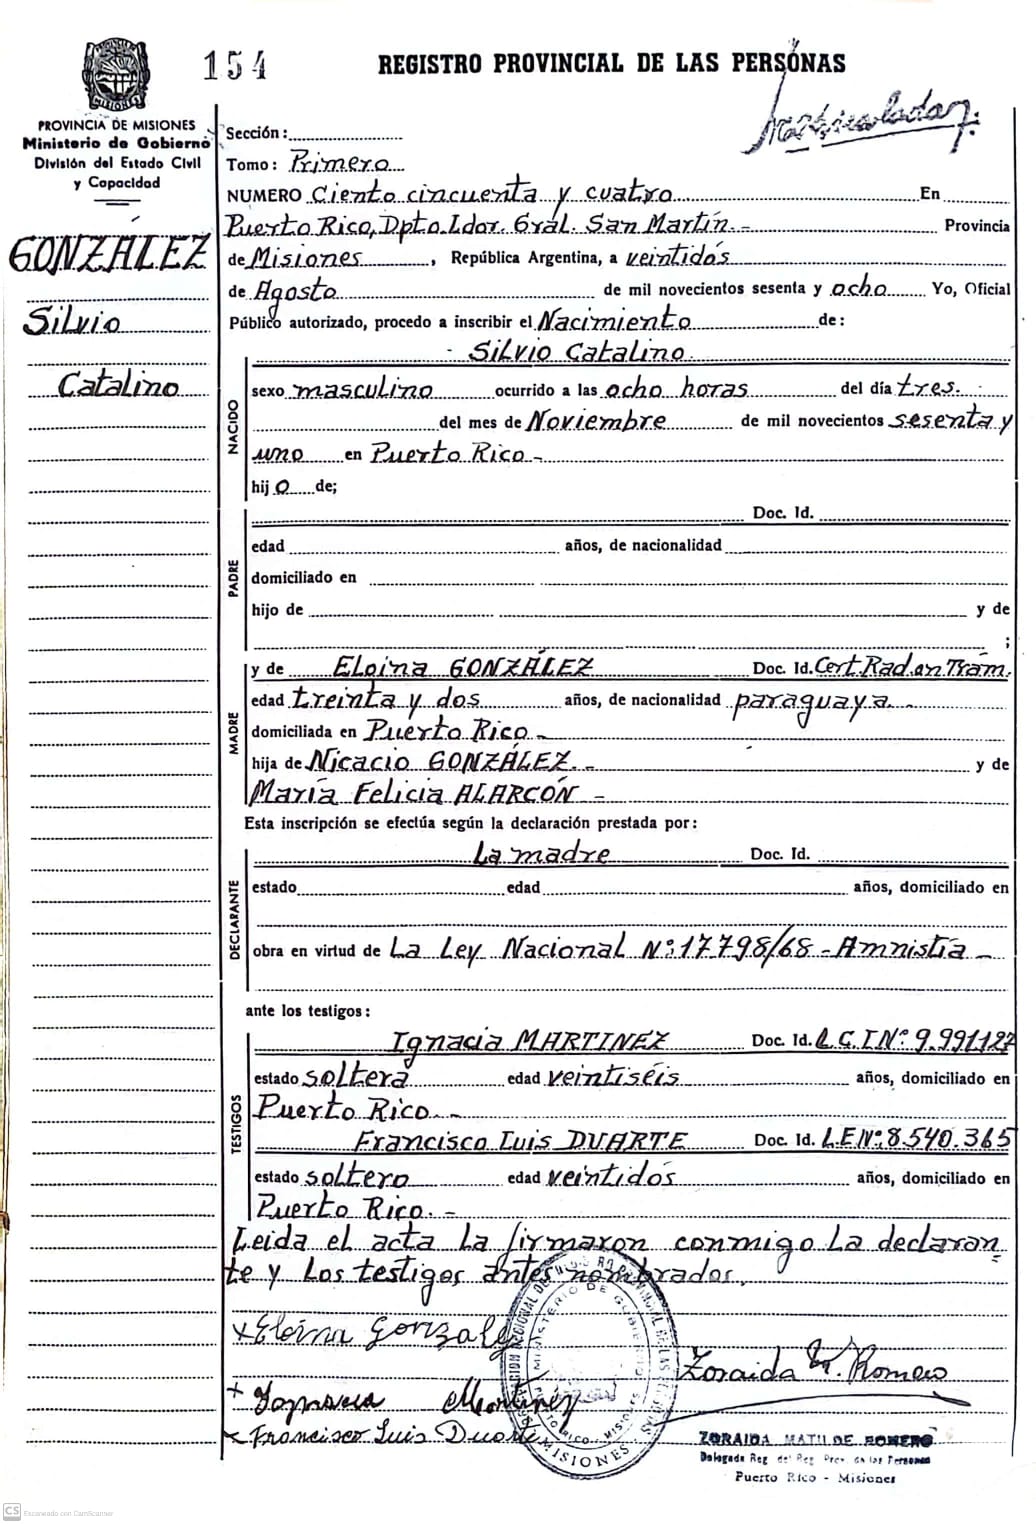 154
REGISTRO PROVINCIAL DE LAS PERSONAS
PROVINCIA DE MISIONES
Ministerio de Gobierno
División del Estado Civil
y Capacidad
GONZÁLEZ
Silvio
Catalino
Sección:
Tomo: Primero
NUMERO Ciento cincuenta y cuatro En
Puerto Rico, Dpto. Ldor. Gral. San Martín.- Provincia
de Misiones, República Argentina, a veintidós
de Agosto de mil novecientos sesenta y ocho Yo, Oficial
Público autorizado, procedo a inscribir el Nacimiento de:
- Silvio Catalino.
NACIDO
sexo masculino ocurrido a las ocho horas del día tres.
del mes de Noviembre de mil novecientos sesenta y
uno en Puerto Rico -
hijo de;
PADRE
Doc. Id.
edad años, de nacionalidad
domiciliado en
hijo de y de
;
MADRE
y de Eloina GONZÁLEZ Doc. Id. Cert. Rad. en Trám.
edad treinta y dos años, de nacionalidad paraguaya.-
domiciliada en Puerto Rico -
hija de Nicacio GONZÁLEZ.- y de
María Felicia ALARCÓN -
Esta inscripción se efectúa según la declaración prestada por:
DECLARANTE
La madre Doc. Id.
estado edad años, domiciliado en
obra en virtud de La Ley Nacional Nº:17798/68 - Amnistía -
ante los testigos:
TESTIGOS
Ignacia MARTINEZ Doc. Id. L.C.I Nº 9.991.127
estado soltera edad veintiséis años, domiciliado en
Puerto Rico.-
Francisco Luis DUARTE Doc. Id. L.E Nº:8.540.365
estado soltero edad veintidós años, domiciliado en
Puerto Rico.-
Leída el acta la firmaron conmigo La declaran-
te y Los testigos antes nombrados.
x Eloina Gonzalez
Zoraida M. Romero
+ Ignacia Martinez
x Francisco Luis Duarte
MINISTERIO DE GOBIERNO
PUERTO RICO - MISIONES
MISIONES
ZORAIDA MATIL DE ROMERO
Delegada Reg. del Reg. Prov. de las Personas
Puerto Rico - Misiones
CS Escaneado con CamScanner